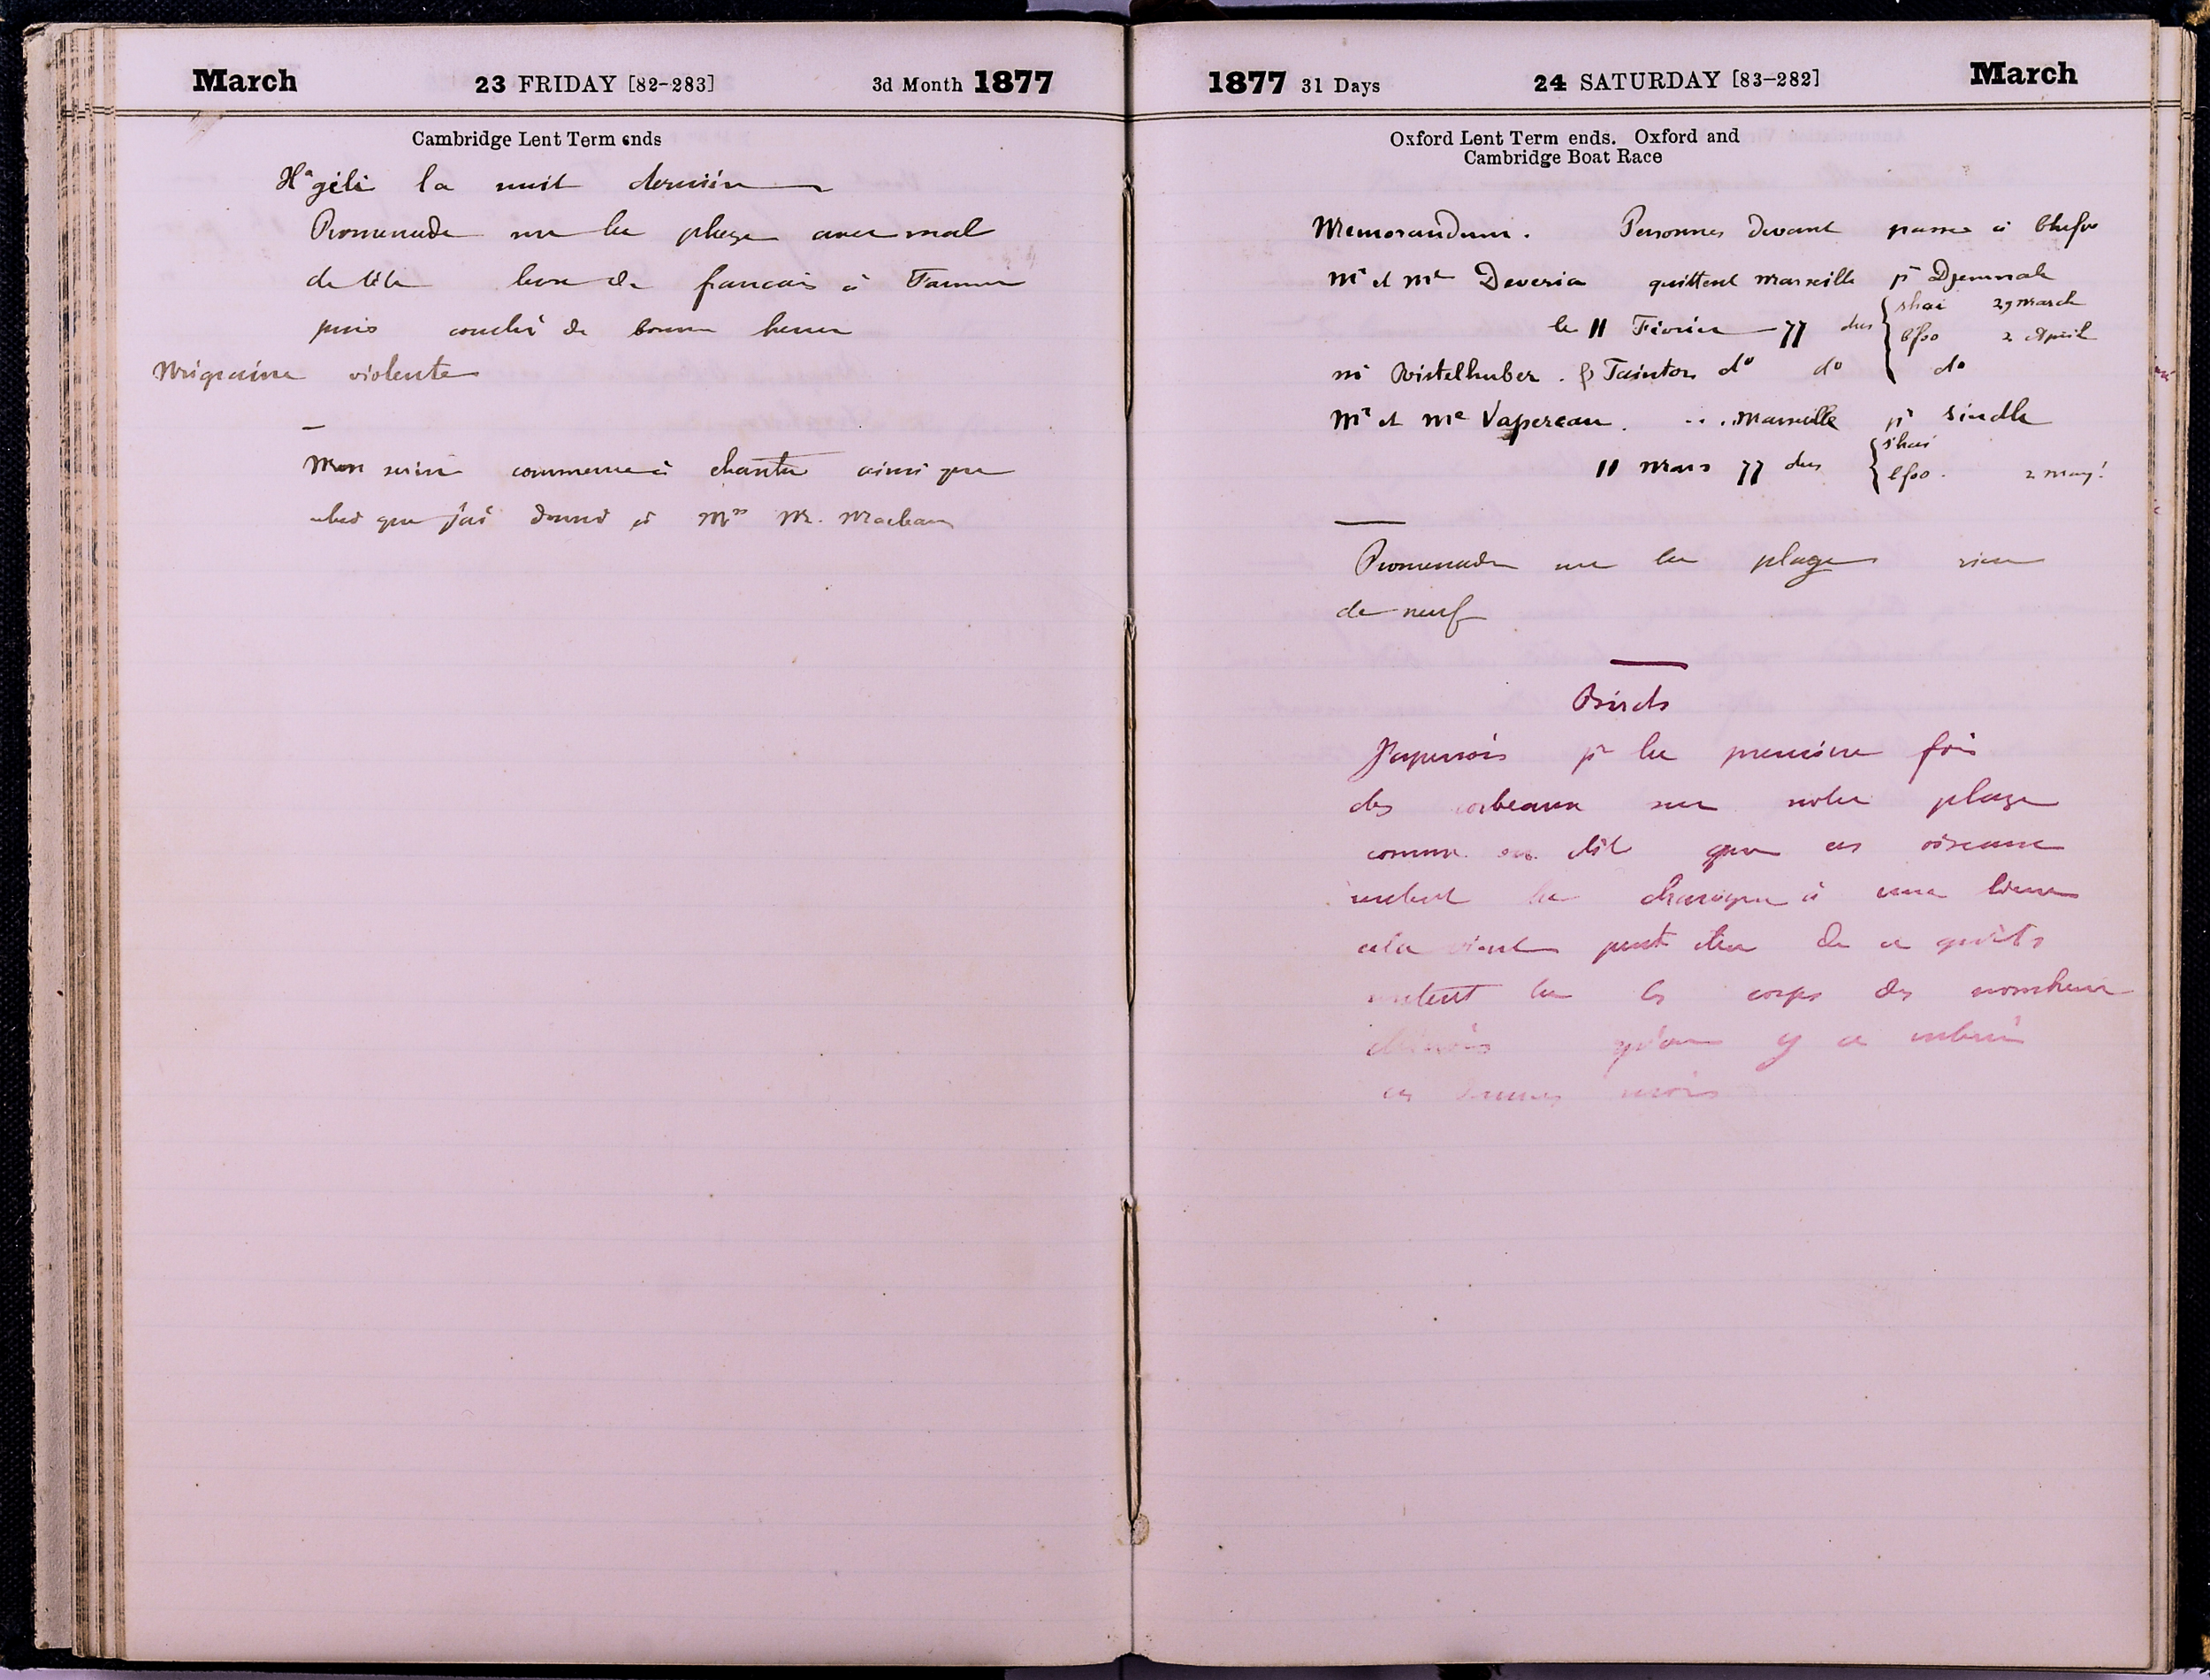 March 23 FRIDAY [82-283] 3d Month 1877
Cambridge Lent Term ends
Il a gelé la nuit dernière
Promenade sur la plage avec mal
de tête lecon de francais à Fannie
puis couché de bonne heure
Migraine violente
Mon serin commence à chanter ainsi que
celui que j'ai donné à Mrs M.
1877 31 Days 24 SATURDAY [83-282] March
Oxford Lent Term ends. Oxford and
Cambridge Boat Race
Memorandum. Personnes devant passer à Chefoo
Mr et Me Deveria quittent Marseille pr Djemnah
le 11 Février 77 due { Shai 29 March
Cfoo 2 April
Mr Ristelhuber & Taintor do do do
Mr et Me Vapereau. Marseille pr Sindh
11 Mars 77 due { Shai
Cfoo. 2 May!
Promenade sur la plage rien
de neuf
Birds
J'aperçois pr la première fois
des corbeaux sur notre plage
comme on dit que ces oiseaux
sentent la charogne à une lieue
cela vient peut etre de ce qu'ils
sentent les corps des nombreux
chinois qu'on y a enterré
ces derniers mois